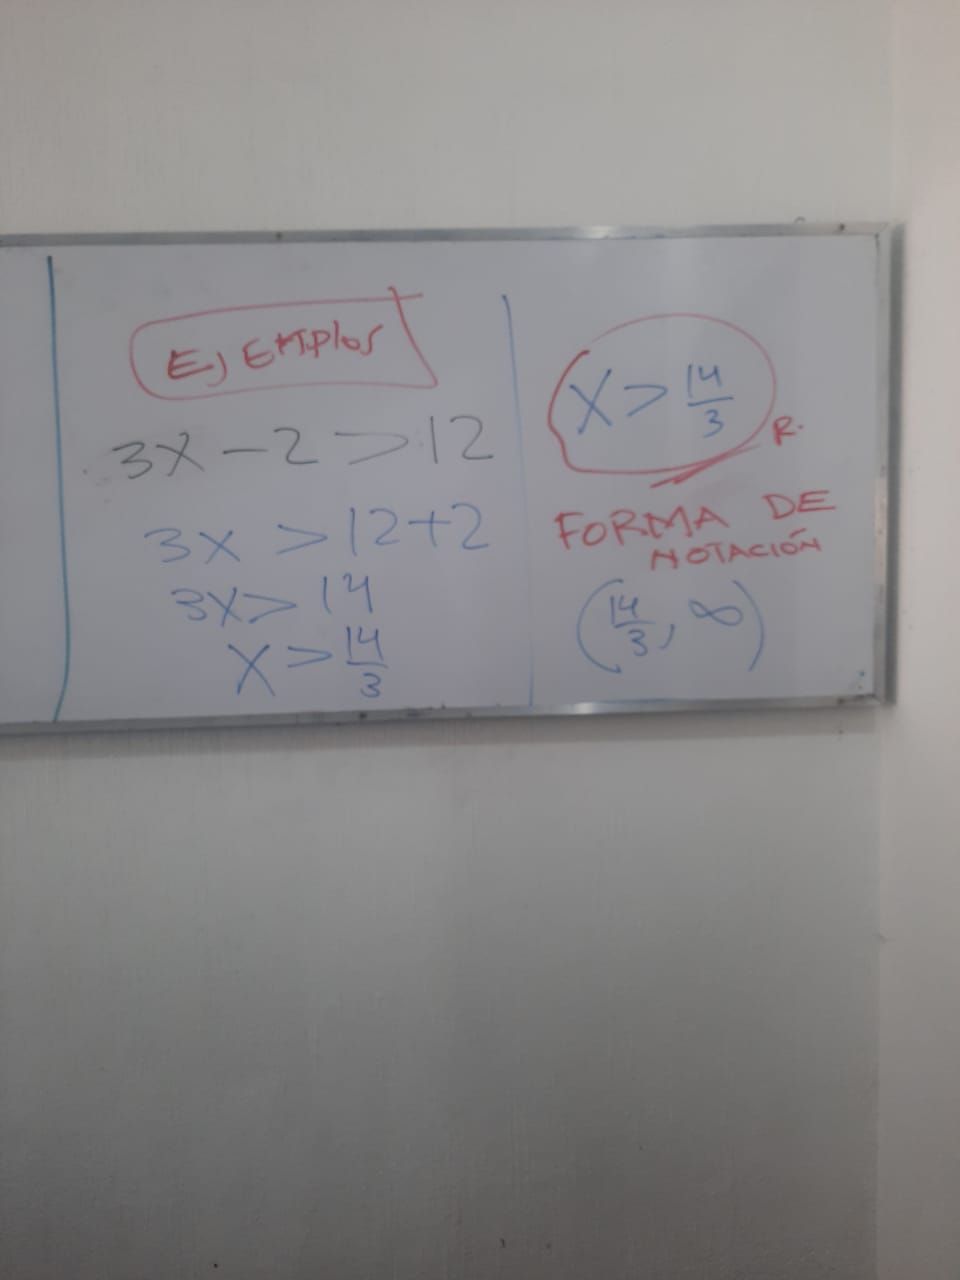 Ejemplos
3x - 2 > 12
3x > 12+2
3x > 14
x > 14/3
x > 14/3 R.
FORMA DE
NOTACIÓN
(14/3, ∞)